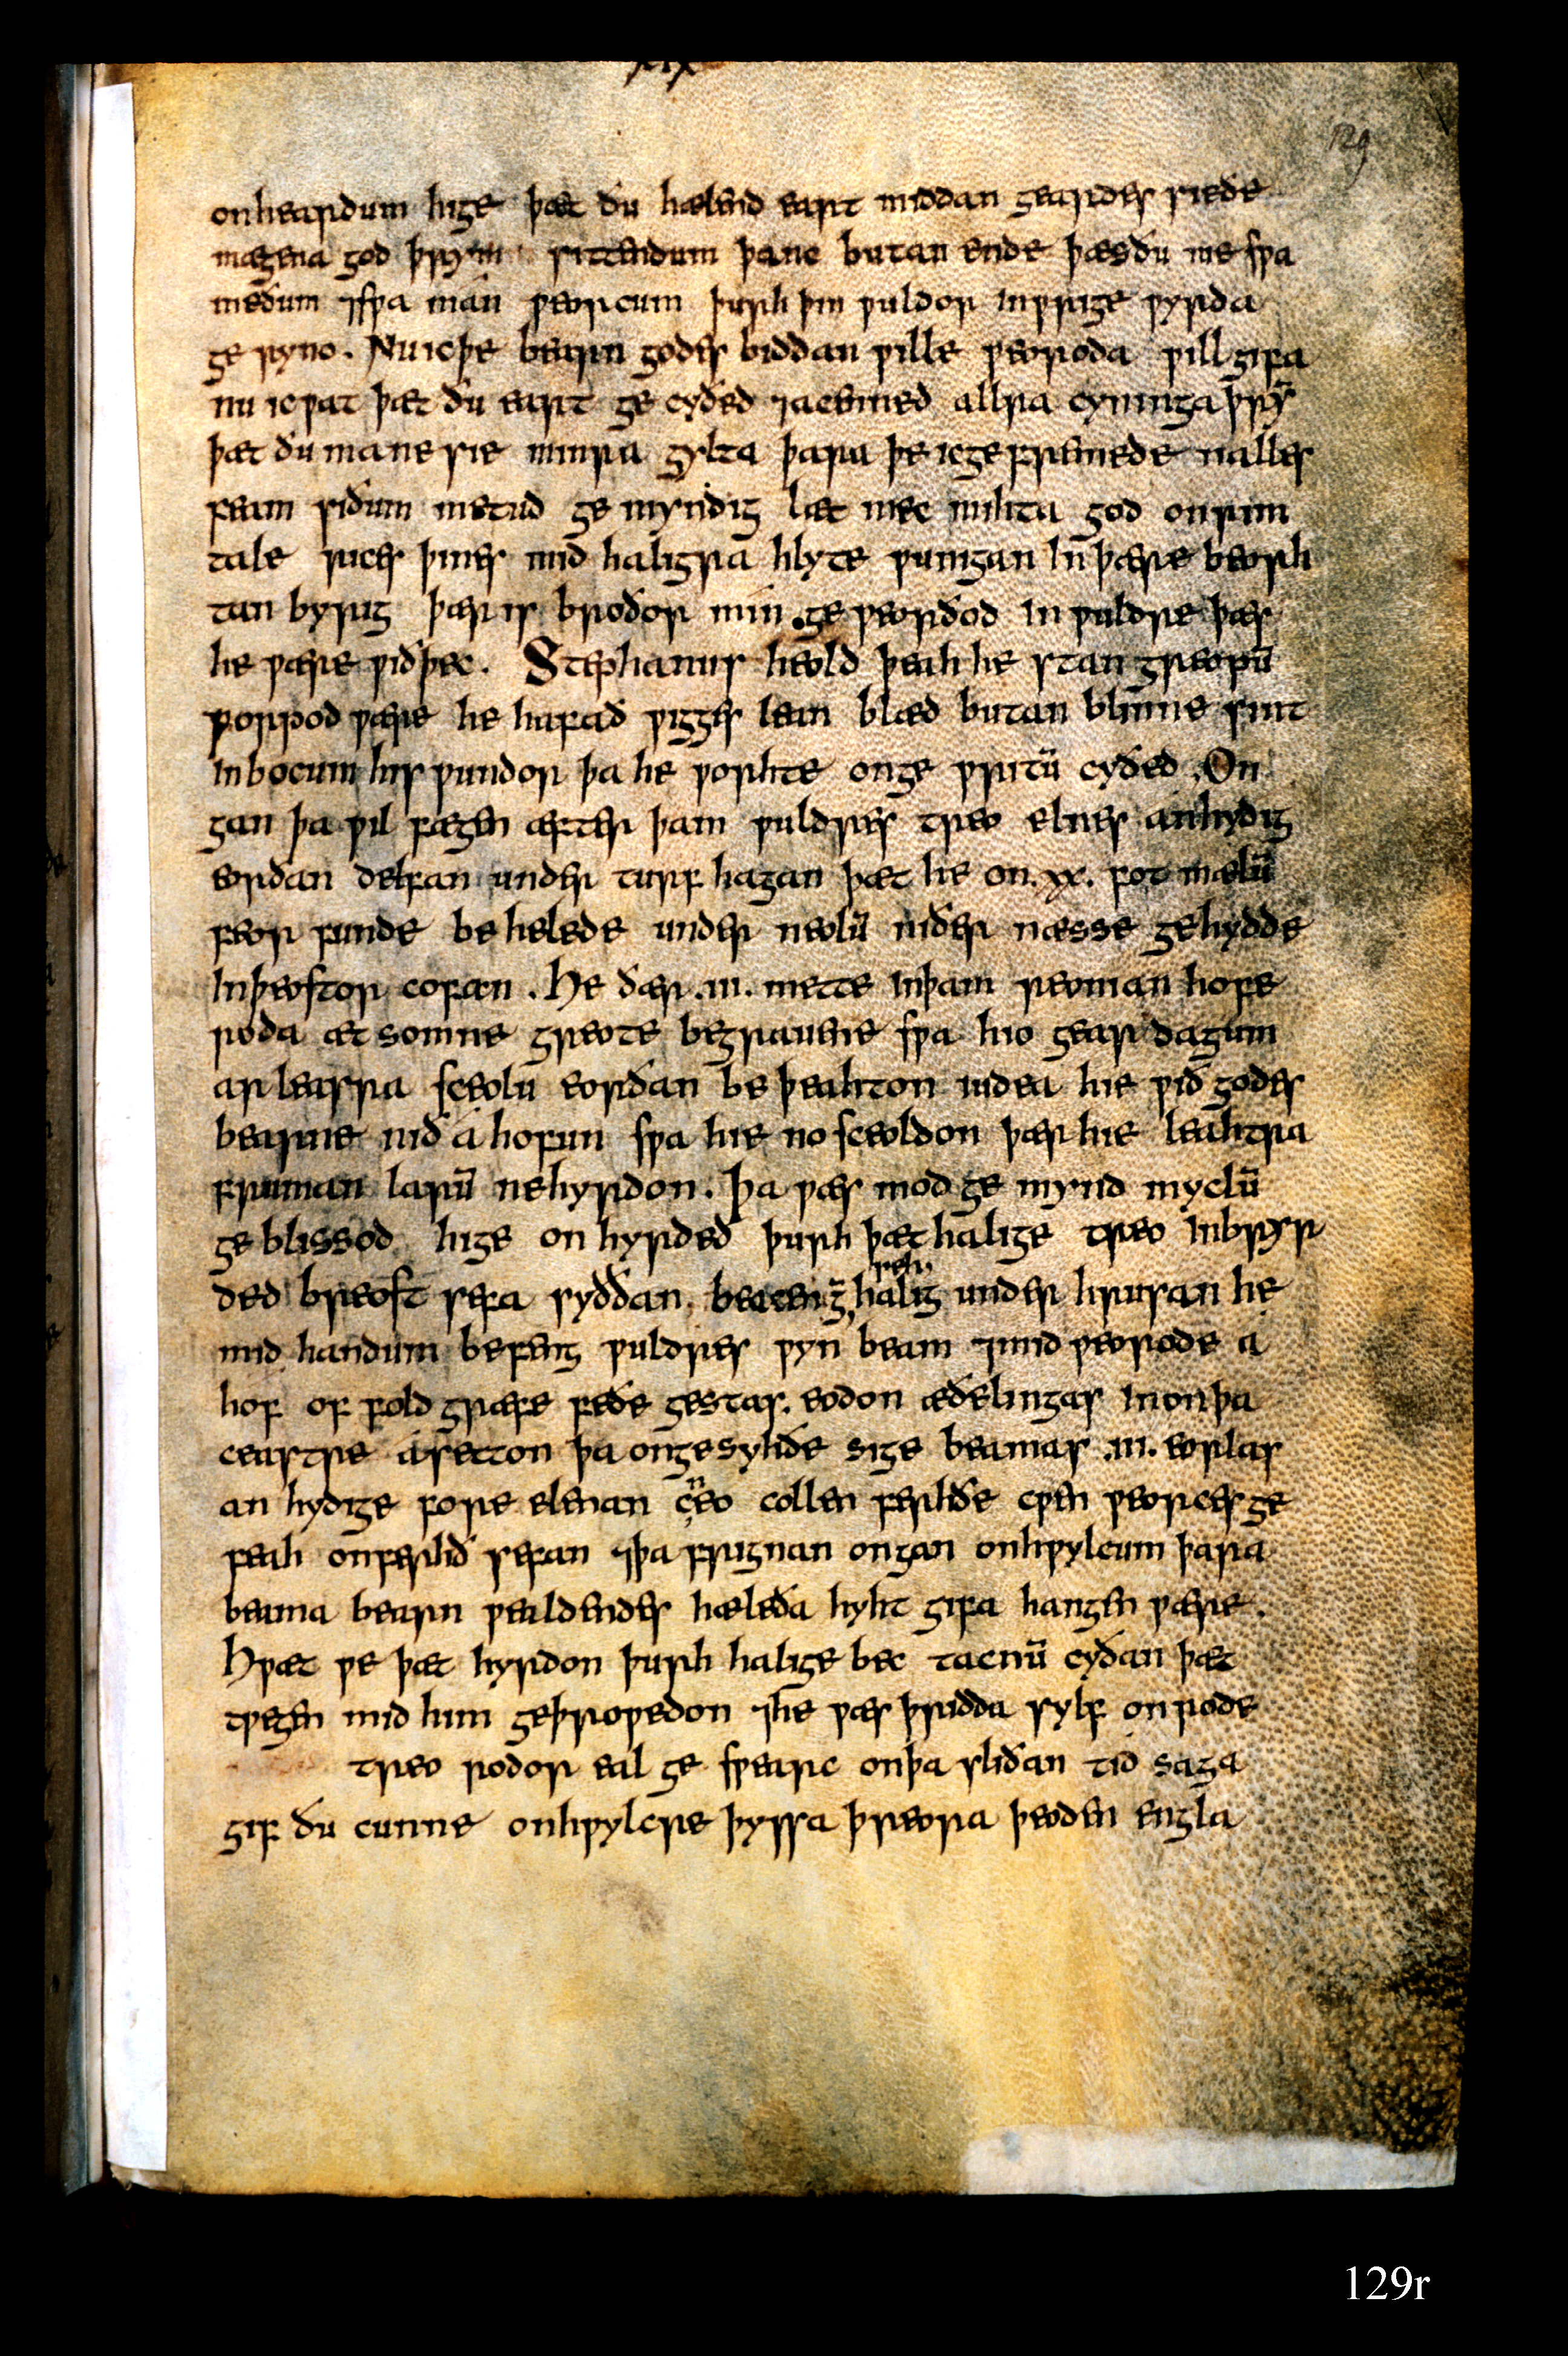 xıx
129
onheardum hige þæt ðu hælend eart middan geardes sie ðe
mægena god þrym sittendum þanc butan ende þæs ðu me swa
meðum ⁊swa mán weorcum þurh þin wuldor inwrige wyrda
ge ryno. Nu ic þe bearn godes biddan wille weoroda will gifa
nu ic wat þæt ðu eart ge cyðed ⁊acenned allra cyninga þrym̄
þæt ðu ma ne sie minra gylta þara þe ic ge fremede nalles
feam siðum metud ge myndig læt mec mihta god onrim
tale rices þines mid haligra hlyte wunigan in þære beorh
tan byrig þær is broðor min. ge weorðod in wuldre þæs
he wære wið þec. Stephanus heold þeah he stan greopū
worpod wære he hafað wigges lean blæd butan blinne sint
in bocum his wundor þa he worhte on ge writū cyðed. On
gan þa wil fægen æfter þam wuldres treo elnes anhydig
eorðan delfan under turf hagan þæt he on .xx. fot mælū
feor funde be helede under neolū niðer næsse gehydde
in þeostor cofan. He ðær .iii. mette in þam reonian hofe
roda æt somne greote begrauene swa hio gear dagum
ar leasra sceolu eorðan be þeahton iudea hie wið godes
bearne nið áhofun swa hie no sceoldon þær hie leahtra
fruman larū ne hyrdon. Þa wæs mod ge mynd myclū
ge blissod hige on hyrded þurh þæt halige treo inbryr
ded breost sefa syððan beacen geseh halig under hrusan he
mid handum befeng wuldres wyn beam ⁊mid weorode á
hof of fold græfe feðe gestas. eodon æðelingas in on þa
ceastre ásetton þa on gesyhðe sige beamas .iii. eorlas
an hydige fore elenan cneo collen ferhðe cwen weorces ge
feah onferhð sefan ⁊þa frignan ongan on hwylcum þara
beama bearn wealdendes hæleða hyht gifa hangen wære.
Hwæt we þæt hyrdon þurh halige bec tacnū cyðan þæt
twegen mid him geþrowedon ⁊he wæs þridda sylf on rode
treo rodor eal ge swearc on þa sliðan tid saga
gif ðu cunne on hwylcre þyssa þreora þeoden engla
129r